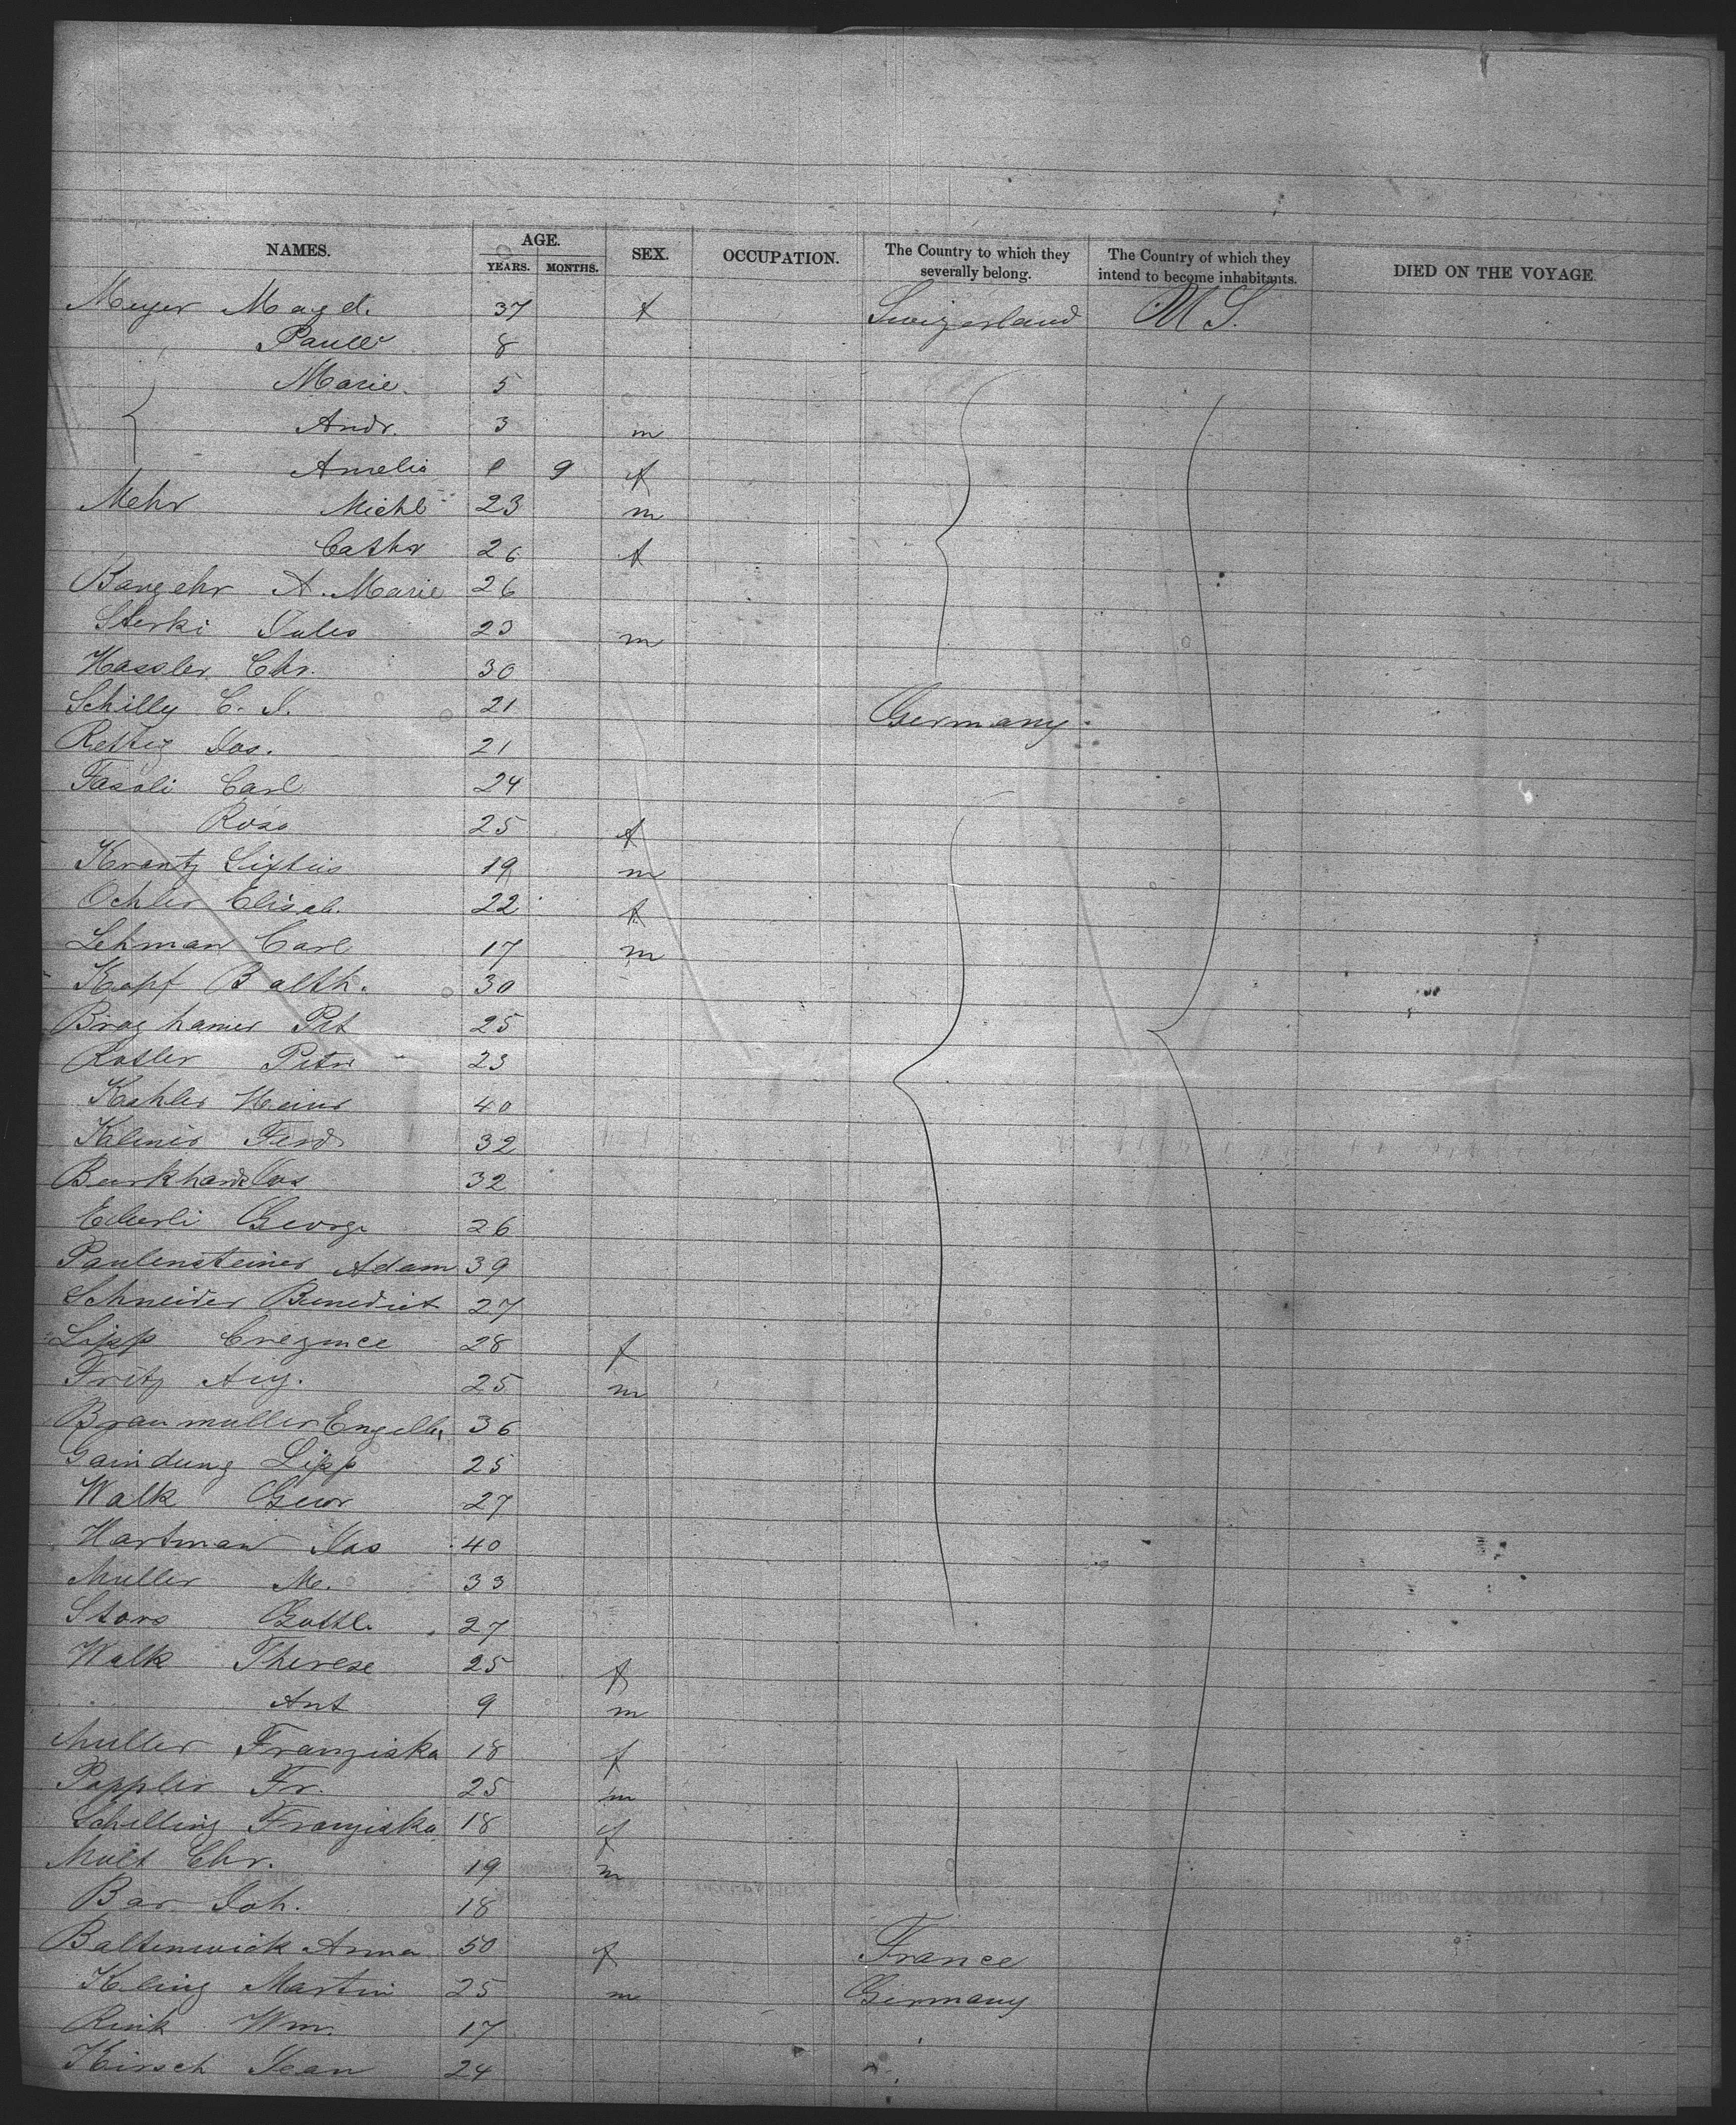 NAMES. AGE. YEARS. MONTHS. SEX. OCCUPATION. The Country to which they severally belong. The Country of which they intend to become inhabitants. DIED ON THE VOYAGE.
Meyer Magd. 37 f Swizerland U S.
8
Marie 5
Andr. 3 m
Amelia 9 f
Mehr Michl 23 m
Cathr 26 f
A. Marie 26
Sterki Jules 23 m
Hassler Chr. 30
Schilly C. J. 21 Germany.
Rettig Jos. 21
Fasoli Carl 24
Rosa 25 f
Krantz Sixtus 19 m
Oehler Elisab. 22 f
Lehman Carl 17 m
Kopf Balth. 30
Pet 25
Rosler Peter 23
Kohler Heinr 40
Ferd 32
Burkhard Jos 32
Eberli George 26
Paulensteiner Adam 39
Schneider Benedict 27
Lipp 28 f
Fritz Aug. 25 m
Braumuller 36
Lipp 25
Walk Geor 27
Hartman Jos 40
Muller M. 33
Gottl. 27
Walk Therese 25 f
Ant 9 m
Muller Franziska 18 f
Poppler Fr. 25 m
Schilling Franziska 18 f
Chr. 19 m
Bar Joh. 18
Anna 50 f France
Kling Martin 25 m Germany
Rink Wm. 17
Kirsch Jean 24